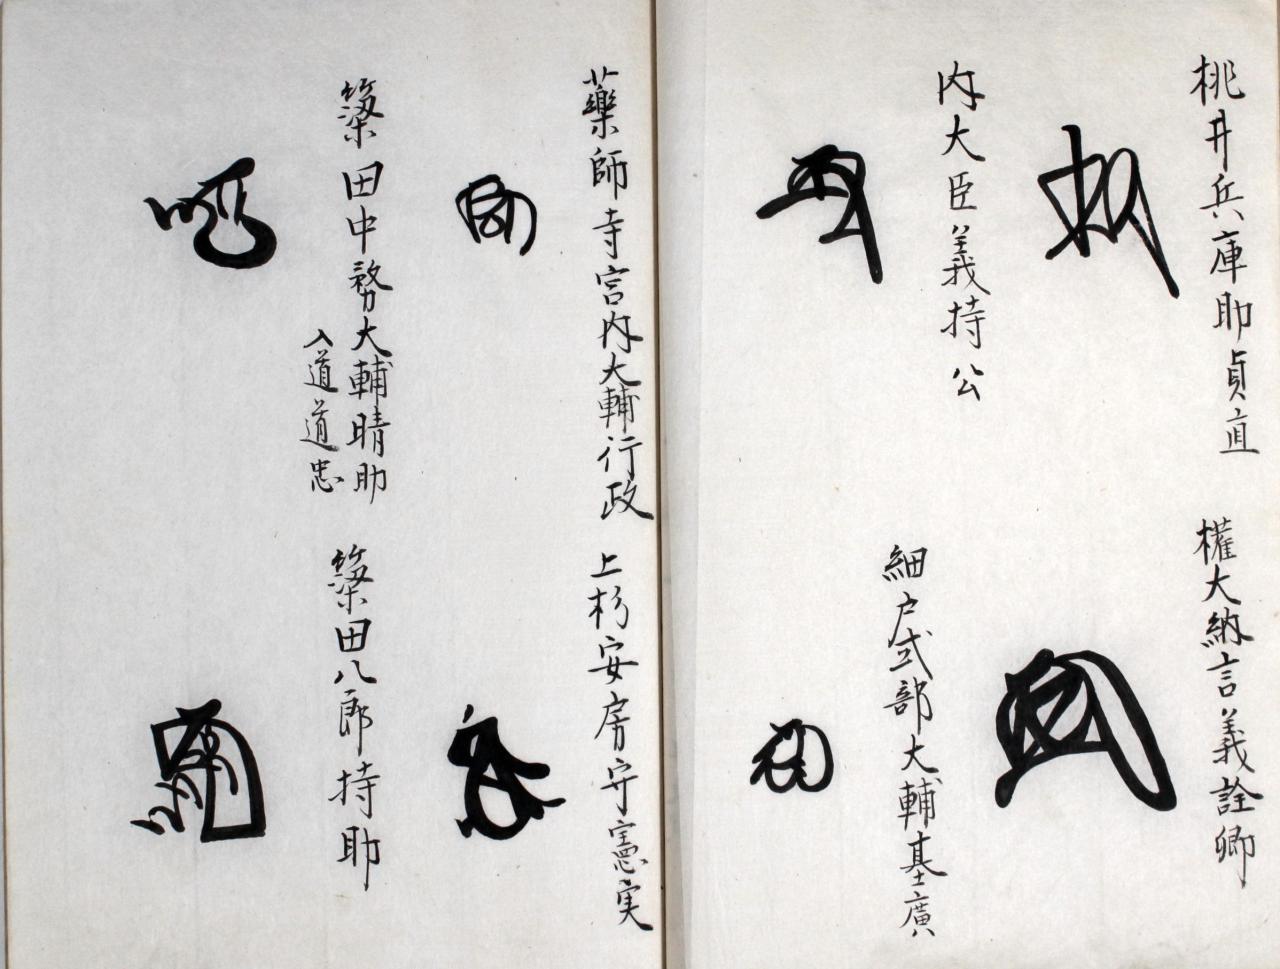 桃井兵庫助貞直
權大納言義詮卿
内大臣義持公
細戸式部大輔基廣
藥師寺宮内大輔行政
上杉安房守憲実
簗田中務大輔晴助
入道道忠
簗田八郎持助